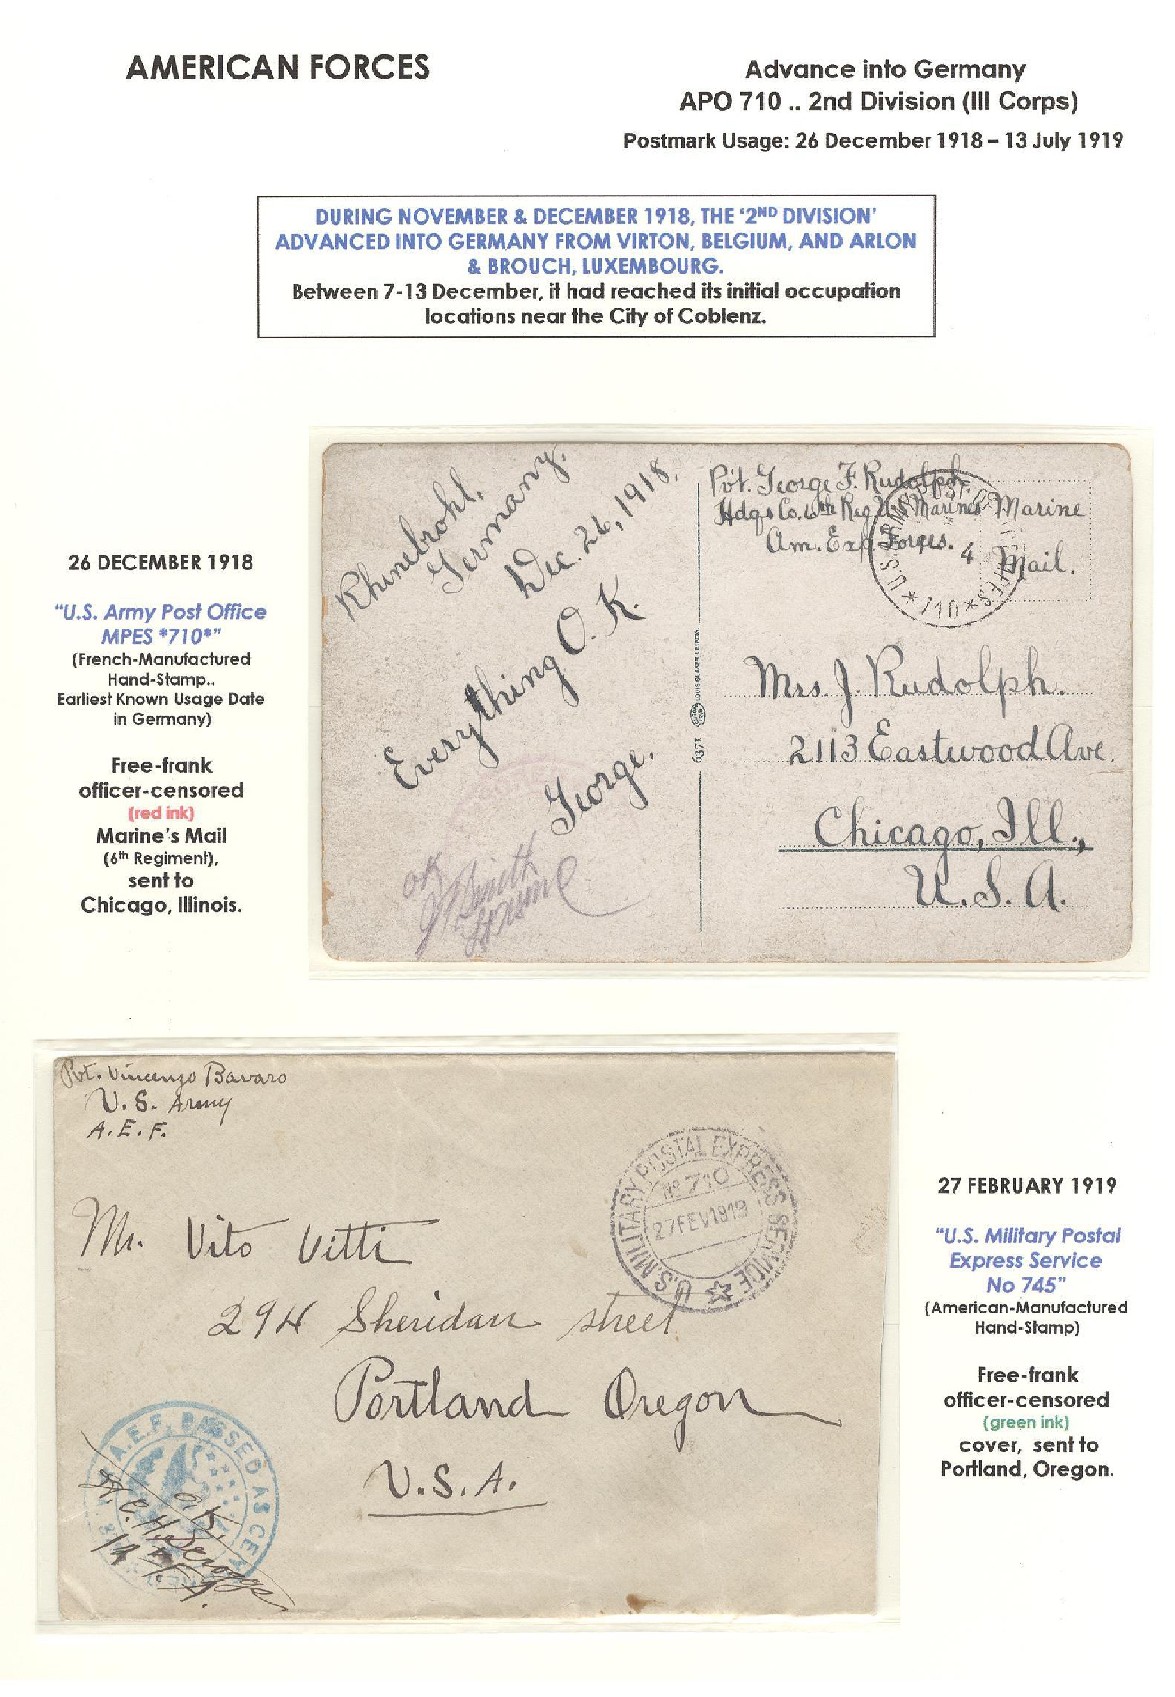 AMERICAN FORCES
Advance into Germany
APO 710 .. 2nd Division (III Corps)
Postmark Usage: 26 December 1918 – 13 July 1919
DURING NOVEMBER & DECEMBER 1918, THE ‘2ND DIVISION’
ADVANCED INTO GERMANY FROM VIRTON, BELGIUM, AND ARLON
& BROUCH, LUXEMBOURG.
Between 7-13 December, it had reached its initial occupation
locations near the City of Coblenz.
26 DECEMBER 1918
“U.S. Army Post Office
MPES *710*”
(French-Manufactured
Hand-Stamp..
Earliest Known Usage Date
in Germany)
Free-frank
officer-censored
(red ink)
Marine’s Mail
(6th Regiment),
sent to
Chicago, Illinois.
Rhinebrohl,
Germany.
Dec. 26, 1918.
Everything O.K.
George.
OK
Smith
Pvt. George F. Rudolph.
Hdqs Co. 6th Reg U.S. Marines Marine
Am. Exp. Forces. Mail.
4
*710*
Mrs. J. Rudolph.
2113 Eastwood Ave.
Chicago, Ill.,
U.S.A.
Pvt. Vincenzo Bavaro
U.S. Army
A.E.F.
U.S. MILITARY POSTAL EXPRESS SERVICE
No 710
27 FEV 1919
Mr. Vito Vitti
294 Sheridan street
Portland Oregon
U.S.A.
A.E.F. PASSED AS CE
OK
27 FEBRUARY 1919
“U.S. Military Postal
Express Service
No 745”
(American-Manufactured
Hand-Stamp)
Free-frank
officer-censored
(green ink)
cover, sent to
Portland, Oregon.